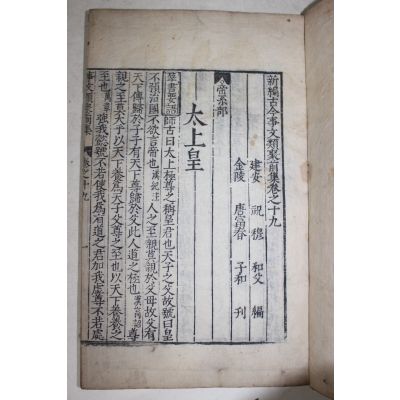 新編古今事文類聚前集卷之十九
建安 祝穆 和父 編
金陵 唐富春 子和 刊
帝系部
太上皇
羣書要語 師古曰太上極尊之稱皇君也天子之父故號曰皇
不預治國不欲言帝也 漢紀注 人之至親莫親於父母故父有
天下傳歸於子子有天下尊歸於父此人道之極也 漢高祖詔 尊
親之至莫大乎以天下養爲天子父尊之至也以天下養養之
至也 萬章 號我慾號不若使我爲有道之君加我處尊不若處
事文類聚前集 卷之十九 一